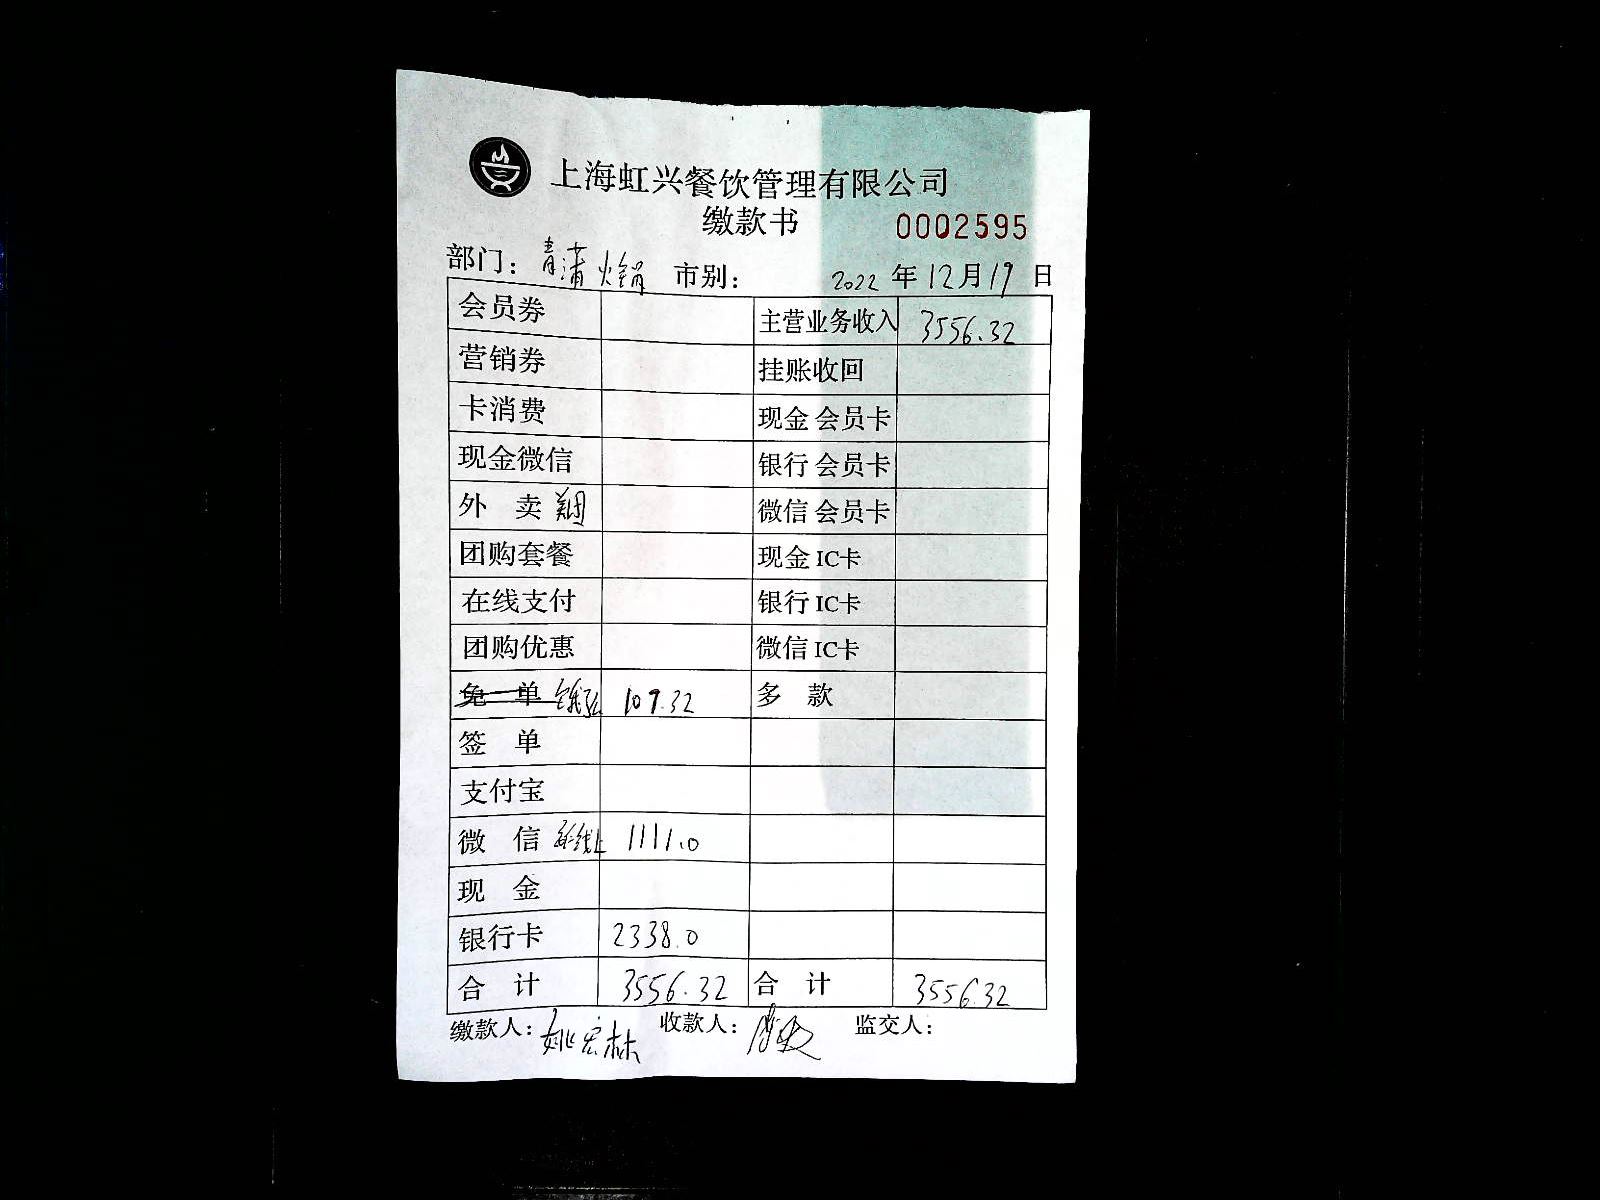 上海虹兴餐饮管理有限公司
缴款书 0002595
部门：青浦火锅 市别： 2022 年 12 月 19 日
会员券 主营业务收入 3556.32
营销券 挂账收回
卡消费 现金 会员卡
现金微信 银行 会员卡
外 卖 美团 微信 会员卡
团购套餐 现金 IC卡
在线支付 银行 IC卡
团购优惠 微信 IC卡
免 单 107.32 多 款
签 单
支付宝
微 信 1111.0
现 金
银行卡 2338.0
合 计 3556.32 合 计 3556.32
缴款人：姚宏林 收款人： 监交人：